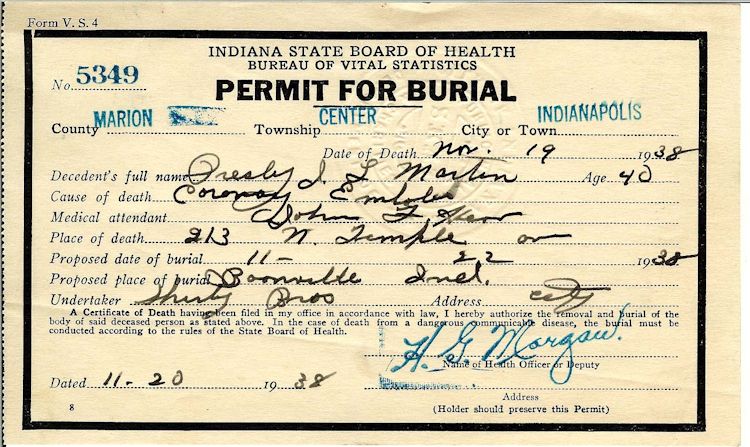 Form V. S. 4
INDIANA STATE BOARD OF HEALTH
BUREAU OF VITAL STATISTICS
No. 5349
PERMIT FOR BURIAL
County MARION Township CENTER City or Town INDIANAPOLIS
Date of Death Nov. 19 1938
Decedent's full name Presley J. L Martin Age 40
Cause of death Coronary Embolis
Medical attendant John F.
Place of death 213 N. Temple av
Proposed date of burial 11- 22 1938
Proposed place of burial Boonville Ind.
Undertaker Shirley Bros Address City
A Certificate of Death having been filed in my office in accordance with law, I hereby authorize the removal and burial of the
body of said deceased person as stated above. In the case of death from a dangerous communicable disease, the burial must be
conducted according to the rules of the State Board of Health.
H. G. Morgan
Name of Health Officer or Deputy
Dated 11-20 1938
Address
8 (Holder should preserve this Permit)